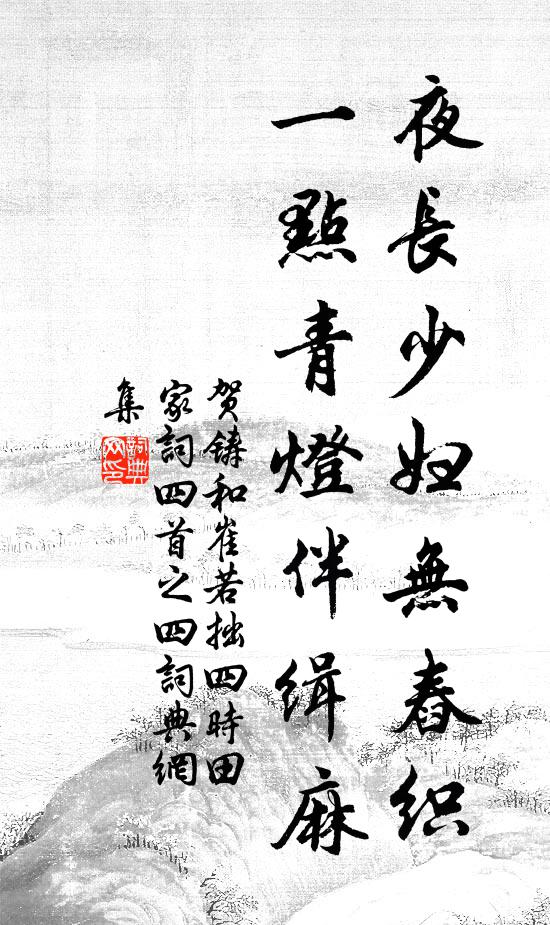 夜長少妇無舂织
一點青燈伴缉麻
贺鑄和崔若拙四時田
家詞四首之四詞典網
集
詞典
网印